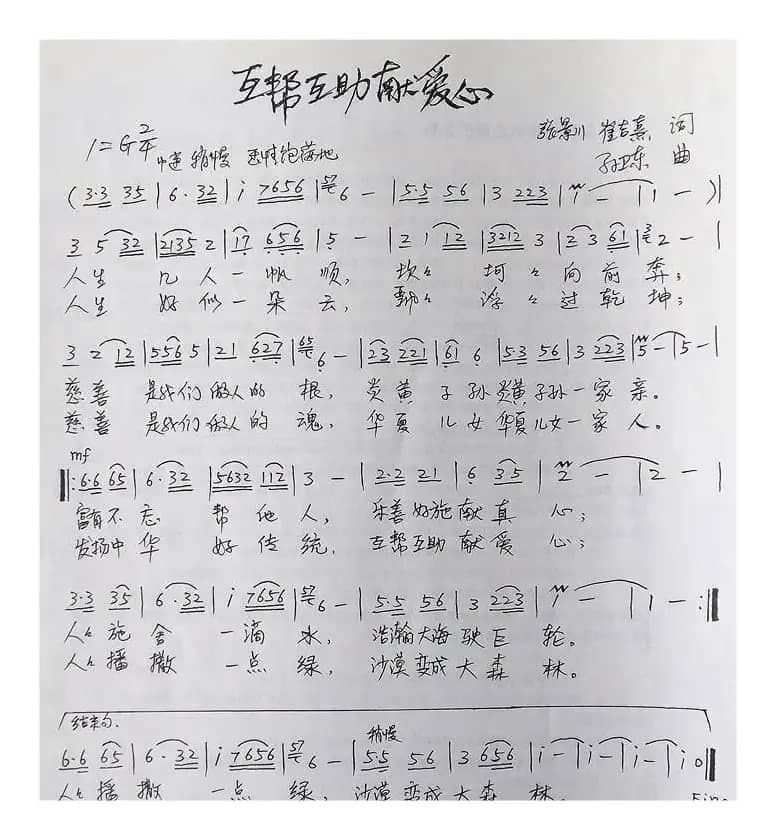 互帮互助献爱心
1=G 2/4 中速 稍慢
张景川 崔吉熹 词
孙卫东 曲
(3·3 35 | 6·32 | i 7656 | 57 6 - | 5·5 56 | 3 223 | 1 - | 1 - )|
3 5 32 | 2135 2 | 17 656 | 5 - | 2 1 12 | 3212 3 | 2 3 61 | 3 2 - |
人生 几人一帆顺, 坎々 坷々向前奔;
人生 好似一朵云, 飘々 浮々过乾坤;
3 2 12 | 556 5 | 21 627 | 65 6 - | 23 221 | 61 6 | 5·3 56 | 3 223 | 5 - | 5 - |
慈善 是我们做人的 根, 炎黄 子孙炎黄子孙一家 亲。
慈善 是我们做人的 魂, 华夏 儿女华夏儿女一家 人。
mf
|: 6·6 65 | 6·32 | 5632 112 | 3 - | 2·2 21 | 6 35 | 2 - | 2 - |
富有不忘 帮他人, 乐善好施献真 心;
发扬中华 好传统, 互帮互助献爱 心;
3·3 35 | 6·32 | i 7656 | 57 6 - | 5·5 56 | 3 223 | 1 - | 1 - :|
人々施舍 一滴水, 浩瀚大海驶巨 轮。
人々播撒 一点绿, 沙漠变成大森 林。
结束句. 稍慢
6·6 65 | 6·32 | i 7656 | 57 6 - | 5·5 56 | 3 656 | i - | i - | i - | i 0 ‖
人々播撒 一点绿, 沙漠变成大森 林。
Fine